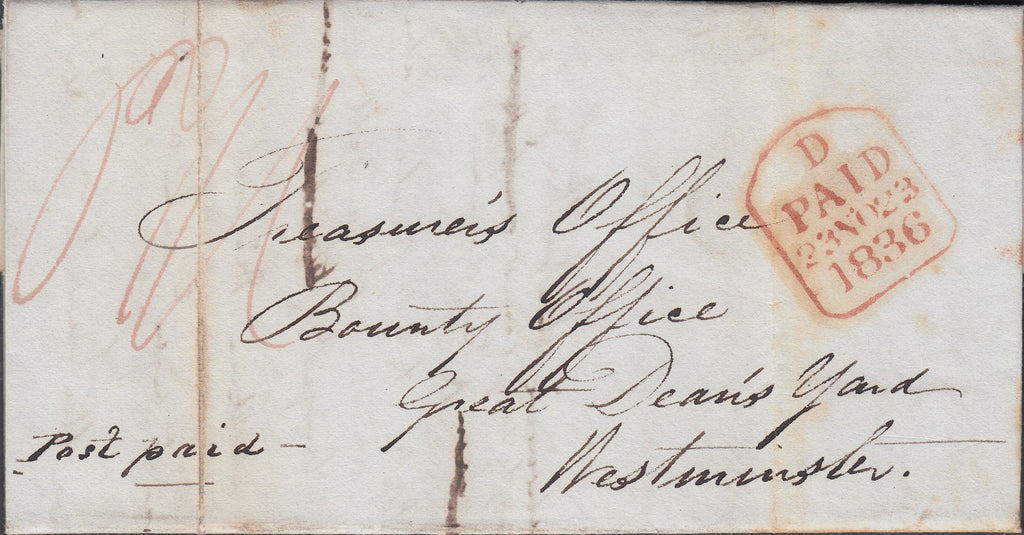 D
PAID
23NO23
1836
Treasurer's Office
Bounty Office
Great Dean's Yard
Westminster.
Post paid